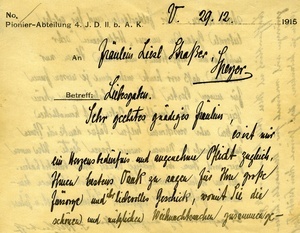 V. 29.12.
No.                    1915
Pionier-Abteilung 4. J. D. II. b. A. K.
An Fräulein Liesl Straßer,
Speyer
Betreff: Liebesgaben.
Sehr geehrtes gnädiges Fräulein,
es ist mir
ein Herzensbedürfnis und angenehme Pflicht zugleich,
Ihnen bestens Dank zu sagen für Ihre große
Fürsorge und Ihr liebevolles Geschick, womit Sie die
schönen und nützlichen Weihnachtssachen zusammenge-